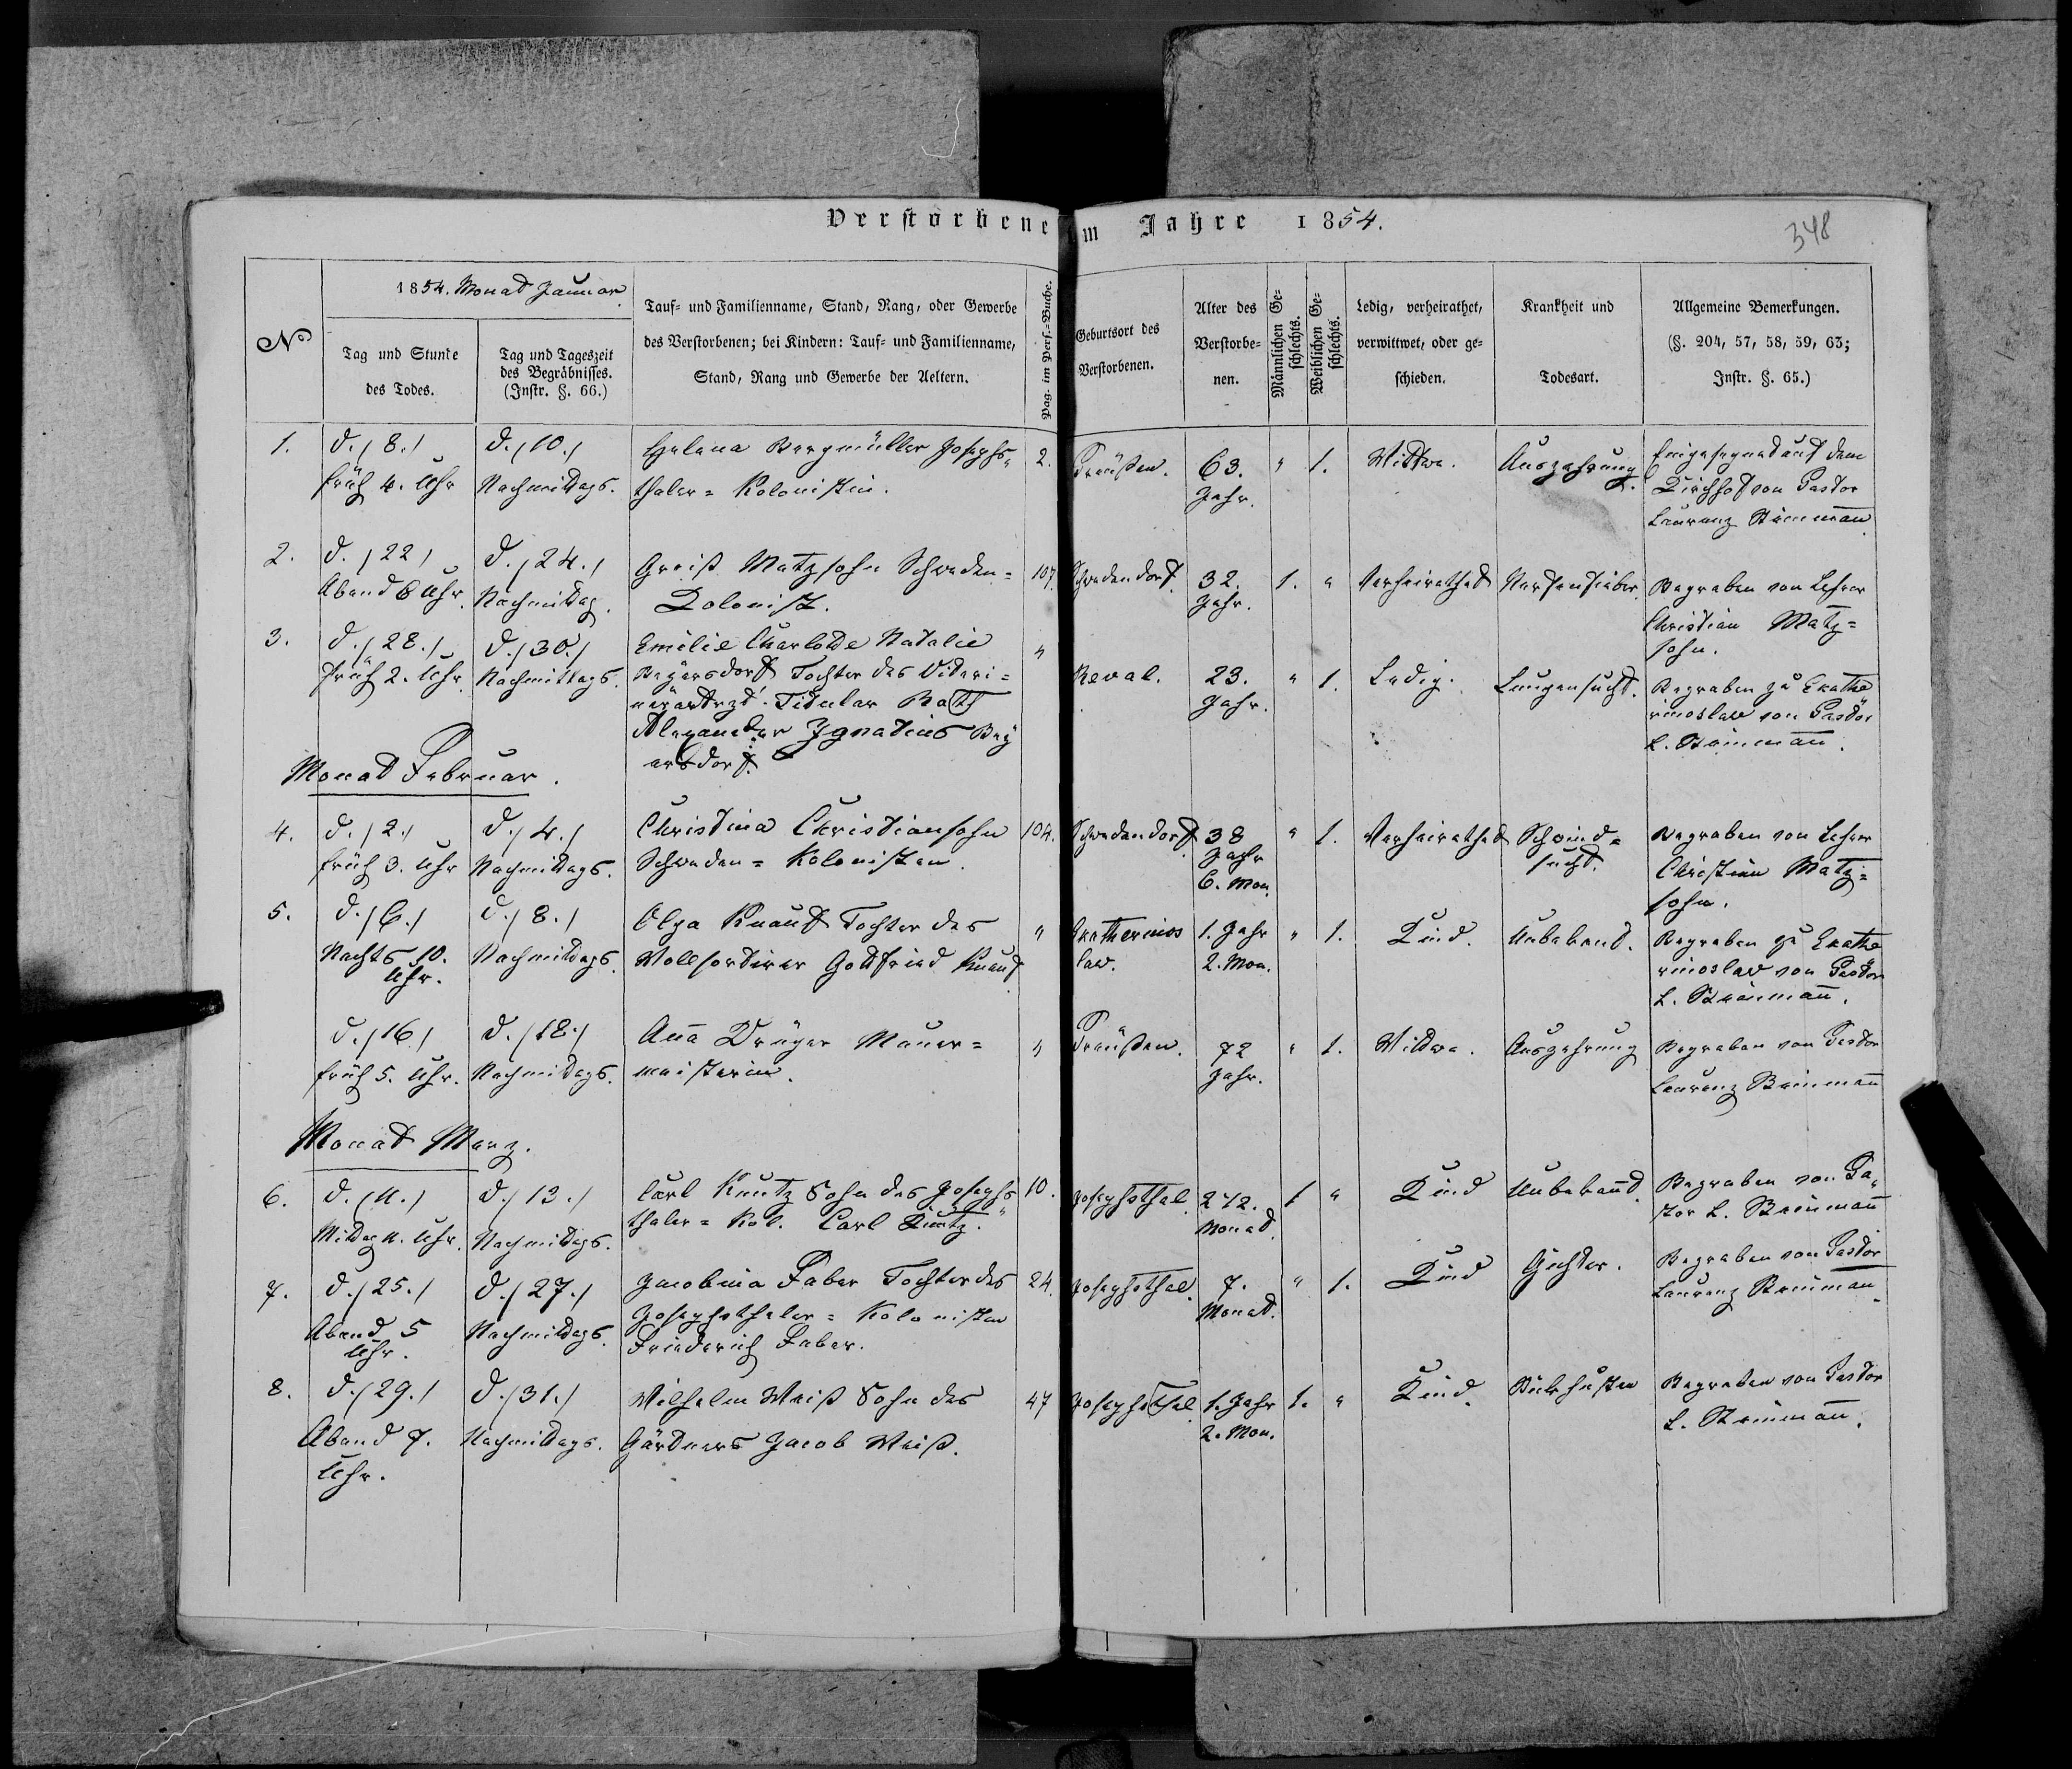 Verstorbene im Jahre 1854.
348
N°
1854. Monat Januar.
Tag und Stunde
des Todes.
Tag und Tageszeit
des Begräbnisses.
(Instr. §. 66.)
Tauf- und Familienname, Stand, Rang, oder Gewerbe
des Verstorbenen; bei Kindern: Tauf- und Familienname,
Stand, Rang und Gewerbe der Aeltern.
Pag. im Pers.-Buche.
Geburtsort des
Verstorbenen.
Alter des
Verstorbe-
nen.
Männlichen Ge-
schlechts.
Weiblichen Ge-
schlechts.
Ledig, verheirathet,
verwittwet, oder ge-
schieden.
Krankheit und
Todesart.
Allgemeine Bemerkungen.
(§. 204, 57, 58, 59, 63;
Instr. §. 65.)
1.
d. / 8. /
früh 4. Uhr
d. / 10. /
Nachmittags.
Helena Bergmüller Josephs-
thaler = Kolonistin.
2.
Preußen.
63.
Jahr.
"
1.
Wittwe.
Auszehrung
Eingesegnet auf dem
Kirchhof von Pastor
Laurenz Steinmann.
2.
d. / 22 /
Abend 6 Uhr.
d. / 24. /
Nachmittag.
Greis Matzsohn Schweden =
Kolonist.
107.
Schwedendorf.
32.
Jahr.
1.
"
Verheirathet
Nervenfieber.
Begraben von Lehrer
Christian Matz =
sohn.
3.
d. / 28. /
früh 2. Uhr.
d. / 30. /
Nachmittags.
Emilie Charlotte Natalie
Beyersdorf Tochter des
Titular Rath
Alexander Ignatius Bey
ersdorf.
"
Reval.
23.
Jahr.
"
1.
Ledig.
Lungensucht.
Begraben zu Ekathe
rinoslaw von Pastor
L. Steinmann.
Monat Februar.
4.
d. / 2. /
früh 3. Uhr
d. / 4. /
Nachmittags.
Christina Christiansohn
Schweden = Kolonisten.
104.
Schwedendorf.
38
Jahr
6. Mon.
"
1.
Verheirathet
Schwind =
sucht.
Begraben von Lehrer
Christian Matz =
sohn.
5.
d. / 6. /
Nachts 10.
Uhr.
d. / 8. /
Nachmittags.
Olga Knauf Tochter des
Wollsortirer Gottfried Knauf
"
Ekatherinos
law.
1. Jahr
2. Mon.
"
1.
Kind.
Unbekant.
Begraben zu Ekathe
rinoslaw von Pastor
L. Steinmann.
d. / 16. /
früh 5. Uhr.
d. / 18. /
Nachmittags.
Anna Krüger Mauer =
meisterin.
"
Preußen.
72
Jahr.
"
1.
Wittwe.
Auszehrung
Begraben von Pastor
Laurenz Steinmann
Monat Marz.
6.
d. / 11. /
Mittag 11. Uhr.
d. / 13. /
Nachmittags.
Carl Kuntz Sohn des Josephs
thaler = Kol. Carl Kuntz.
10.
Josephsthal.
2 1/2.
Monat.
1
"
Kind
Unbekannt.
Begraben von Pa-
stor L. Steinmann
7.
d. / 25. /
Abend 5
Uhr.
d. / 27. /
Nachmittags.
Jacobina Faber Tochter des
Josephsthaler = Kolonisten
Friederich Faber.
24.
Josephsthal.
7.
Monat.
"
1.
Kind
Gichter.
Begraben von Pastor
Laurenz Steinmann.
8.
d. / 29. /
Abend 7.
Uhr.
d. / 31. /
Nachmittags.
Wilhelm Weiß Sohn des
Gärtners Jacob Weiß.
47
Josephsthal.
1. Jahr
2. Mon.
1.
"
Kind.
Begraben von Pastor
L. Steinmann.